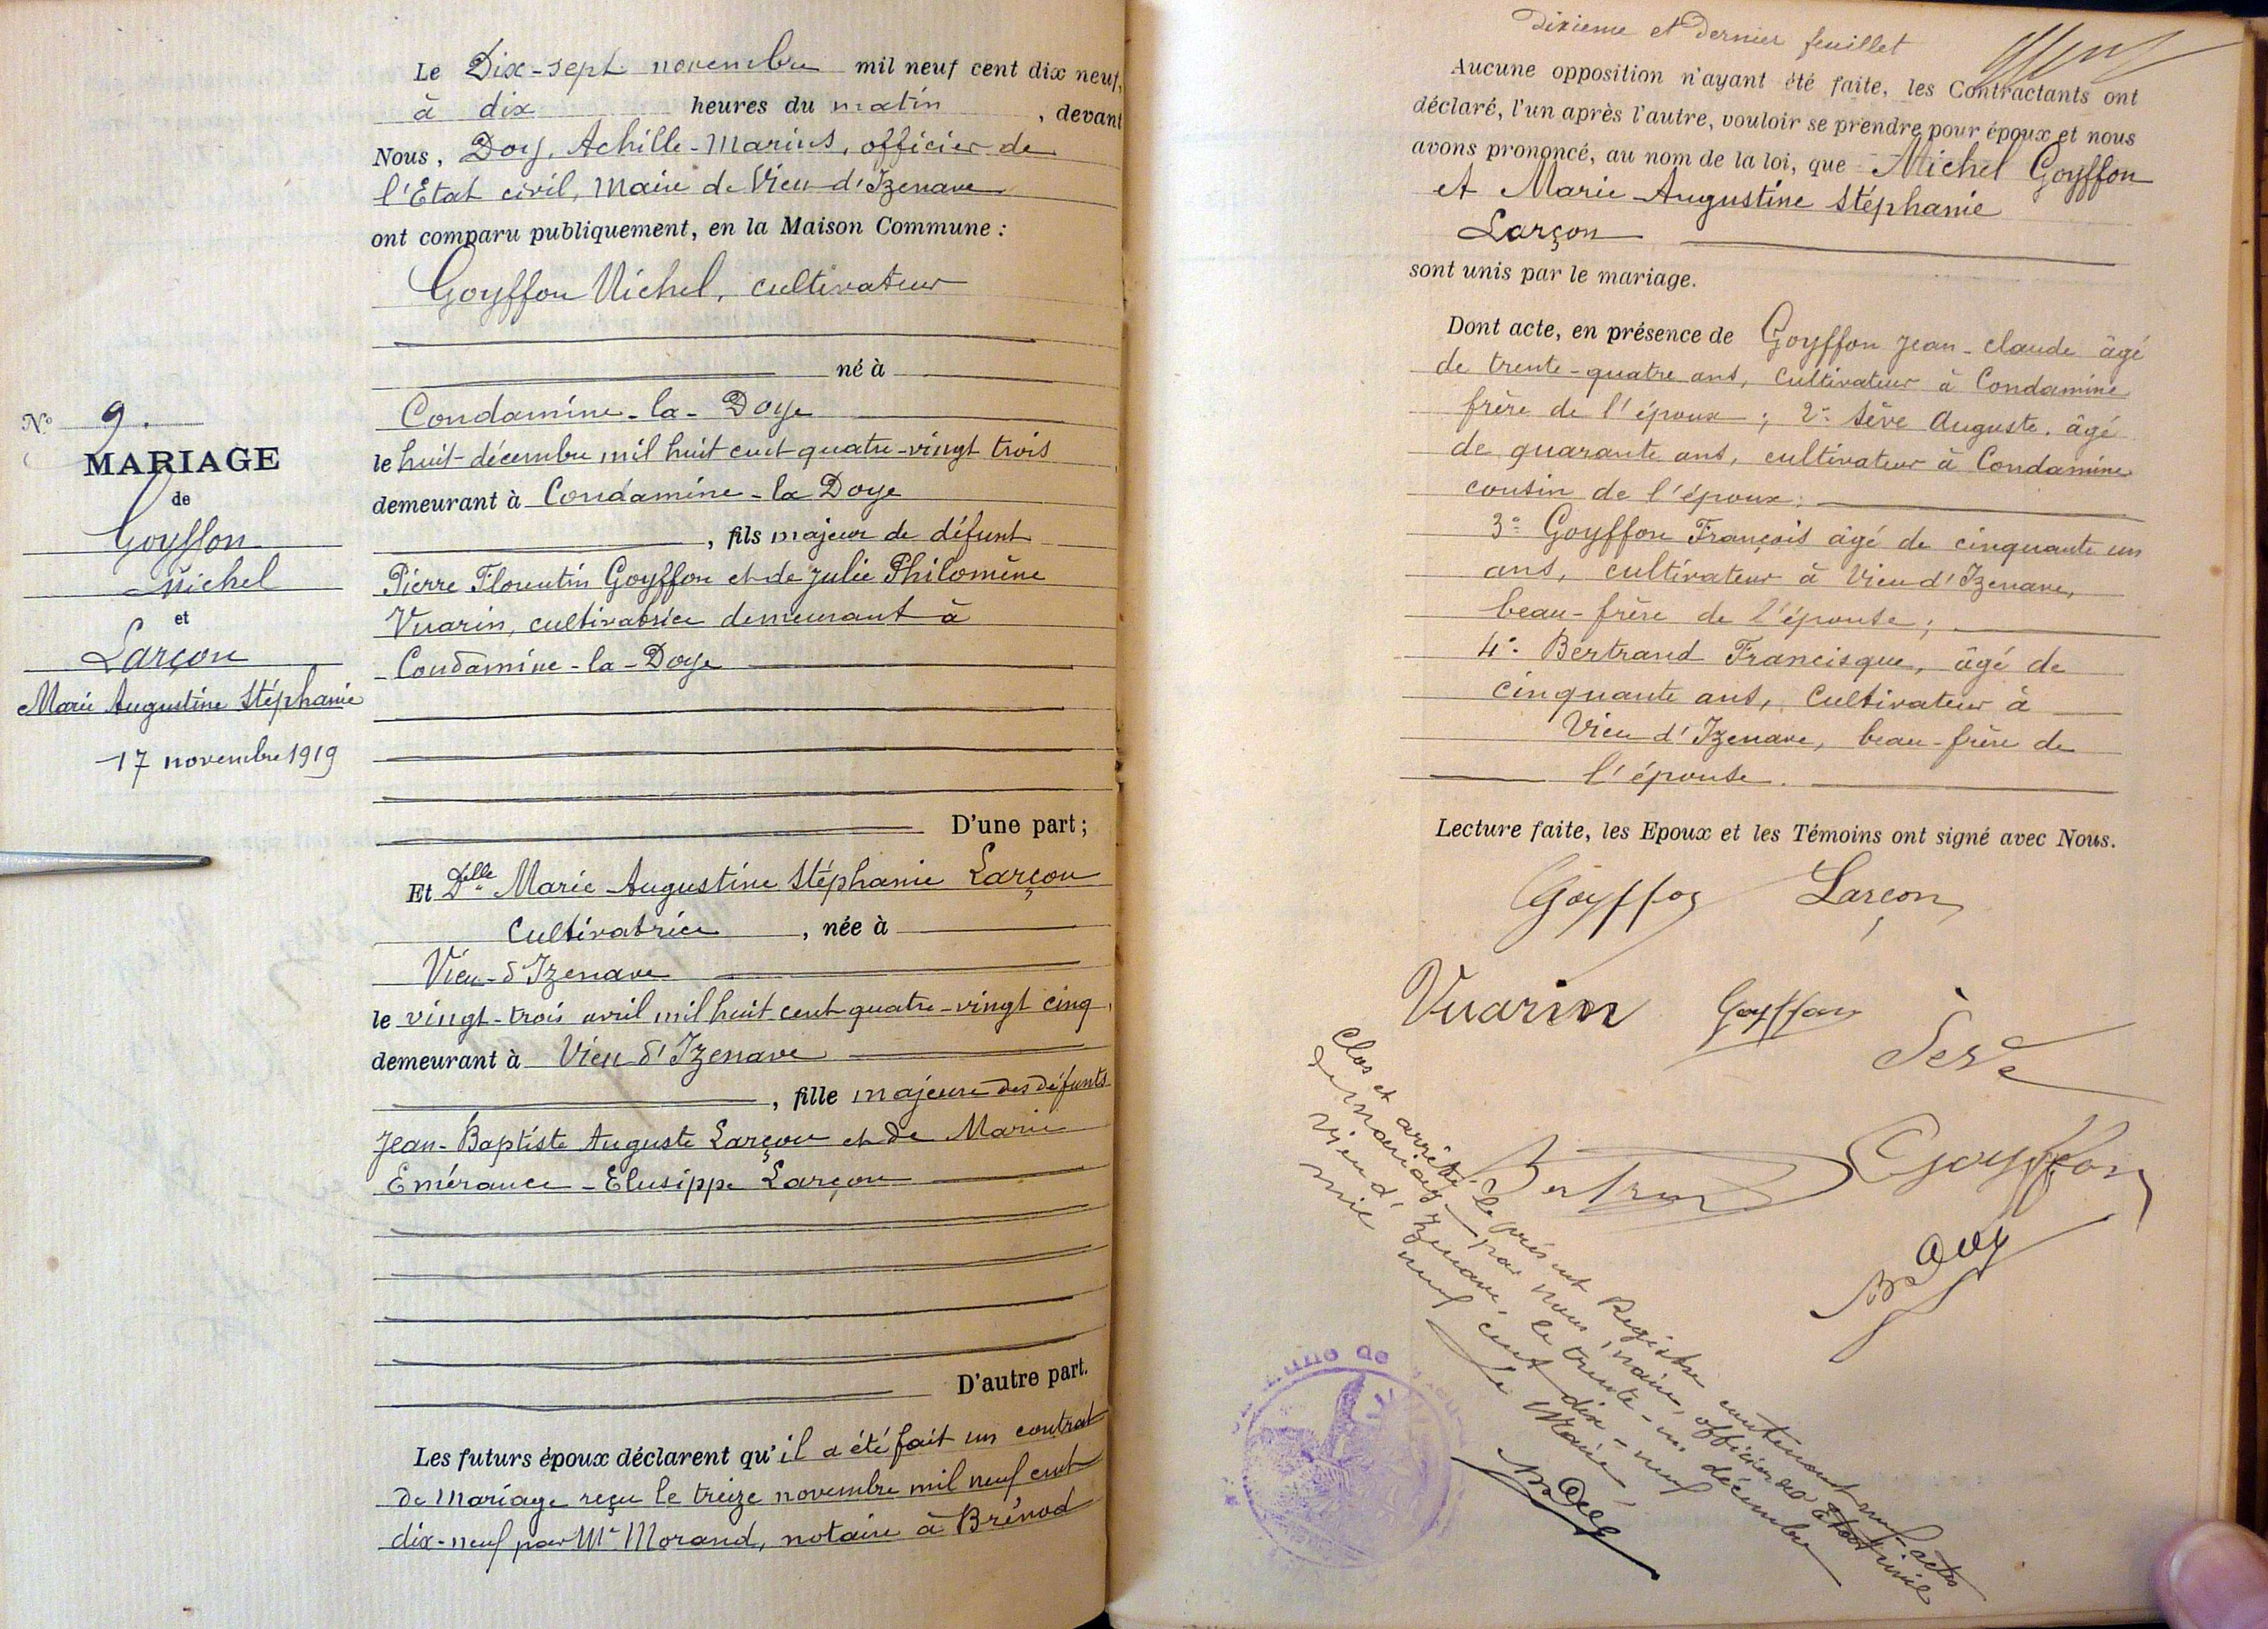 N° 9.
MARIAGE
de
Goyffon
Michel
et
Larçon
Marie Augustine Stéphanie
17 novembre 1919
Le Dix-sept novembre mil neuf cent dix neuf,
à dix heures du matin, devant
Nous, Doy, Achille-Marius, officier de
l'Etat civil, Maire de Vieu-d'Izenave
ont comparu publiquement, en la Maison Commune :
Goyffon Michel, cultivateur
né à
Condamine-la-Doye
le huit décembre mil huit cent quatre-vingt trois
demeurant à Condamine-la Doye
, fils majeur de défunt
Pierre Florentin Goyffon et de Julie Philomène
Vuarin, cultivatrice demeurant à
Condamine-la-Doye
D'une part ;
Et Delle Marie Augustine Stéphanie Larçon
Cultivatrice, née à
Vieu-d'Izenave
le vingt-trois avril mil huit cent quatre-vingt cinq,
demeurant à Vieu d'Izenave
, fille majeure des défunts
Jean-Baptiste Auguste Larçon et de Marie
Emérance-Elusippe Larçon
D'autre part.
Les futurs époux déclarent qu'il a été fait un contrat
de mariage reçu le treize novembre mil neuf cent
dix-neuf par Me Morand, notaire à Brénod
Dixieme et Dernier feuillet
Aucune opposition n'ayant été faite, les Contractants ont
déclaré, l'un après l'autre, vouloir se prendre pour époux et nous
avons prononcé, au nom de la loi, que Michel Goyffon
et Marie Augustine Stéphanie
Larçon
sont unis par le mariage.
Dont acte, en présence de Goyffon Jean-Claude âgé
de trente-quatre ans, cultivateur à Condamine
frère de l'époux ; 2° Sève Auguste, âgé
de quarante ans, cultivateur à Condamine
cousin de l'époux ;
3° Goyffon François âgé de cinquante un
ans, cultivateur à Vieu d'Izenave,
beau-frère de l'épouse ;
4° Bertrand Francisque, âgé de
cinquante ans, Cultivateur à
Vieu d'Izenave, beau-frère de
l'épouse.
Lecture faite, les Epoux et les Témoins ont signé avec Nous.
Goyffon Larçon
Vuarin Goyffon
Seve
Bertrand Goyffon
Doy
Clos et arrêté le présent Registre contenant neuf actes
de mariage par nous, maire, officier de l'Etat civil
Vieu d'Izenave, le trente-un décembre
mil neuf cent dix-neuf
Le Maire,
Doy